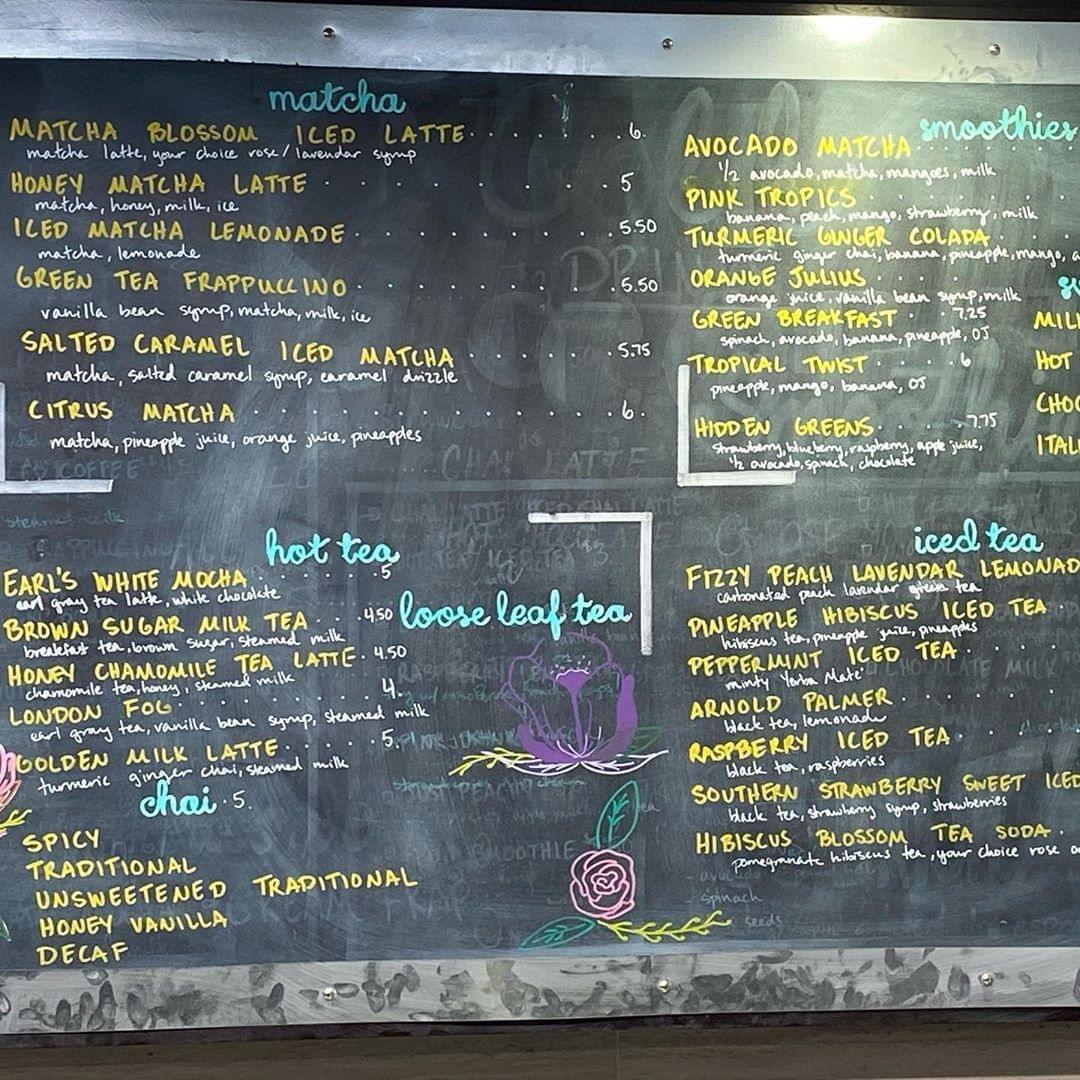 matcha
MATCHA BLOSSOM ICED LATTE 6.
matcha latte, your choice rose/lavendar syrup
HONEY MATCHA LATTE 5
matcha, honey, milk, ice
ICED MATCHA LEMONADE 5.50
matcha, lemonade
GREEN TEA FRAPPUCCINO 5.50
vanilla bean syrup, matcha, milk, ice
SALTED CARAMEL ICED MATCHA 5.75
matcha, salted caramel syrup, caramel drizzle
CITRUS MATCHA 6.
matcha, pineapple juice, orange juice, pineapples
smoothies
AVOCADO MATCHA
1/2 avocado, matcha, mangoes, milk
PINK TROPICS
banana, peach, mango, strawberry, milk
TURMERIC GINGER COLADA
turmeric ginger chai, banana, pineapple, mango,
ORANGE JULIUS
orange juice, vanilla bean syrup, milk
GREEN BREAKFAST 7.25
spinach, avocado, banana, pineapple, OJ
TROPICAL TWIST 6
pineapple, mango, banana, OJ
HIDDEN GREENS 7.75
strawberry, blueberry, raspberry, apple juice,
1/2 avocado, spinach, chocolate
HOT
hot tea
EARL'S WHITE MOCHA 5
earl gray tea latte, white chocolate
BROWN SUGAR MILK TEA 4.50
breakfast tea, brown sugar, steamed milk
HONEY CHAMOMILE TEA LATTE 4.50
chamomile tea, honey, steamed milk
LONDON FOG 4.
earl gray tea, vanilla bean syrup, steamed milk
GOLDEN MILK LATTE 5.
turmeric ginger chai, steamed milk
chai 5.
SPICY
TRADITIONAL
UNSWEETENED TRADITIONAL
HONEY VANILLA
DECAF
loose leaf tea
iced tea
FIZZY PEACH LAVENDAR LEMONAD
carbonated peach lavendar green tea
PINEAPPLE HIBISCUS ICED TEA
hibiscus tea, pineapple juice, pineapples
PEPPERMINT ICED TEA
minty Yerba Mate'
ARNOLD PALMER
black tea, lemonade
RASPBERRY ICED TEA
black tea, raspberries
SOUTHERN STRAWBERRY SWEET ICED
black tea, strawberry syrup, strawberries
HIBISCUS BLOSSOM TEA SODA
pomegranate hibiscus tea, your choice rose